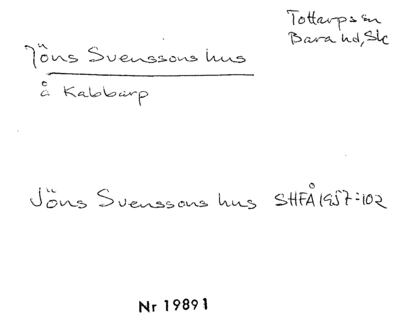 Tottarps sn
Bara hd, Sk
Jöns Svenssons hus
å Kabbarp
Jöns Svenssons hus SHFÅ 1957:102
Nr 19891